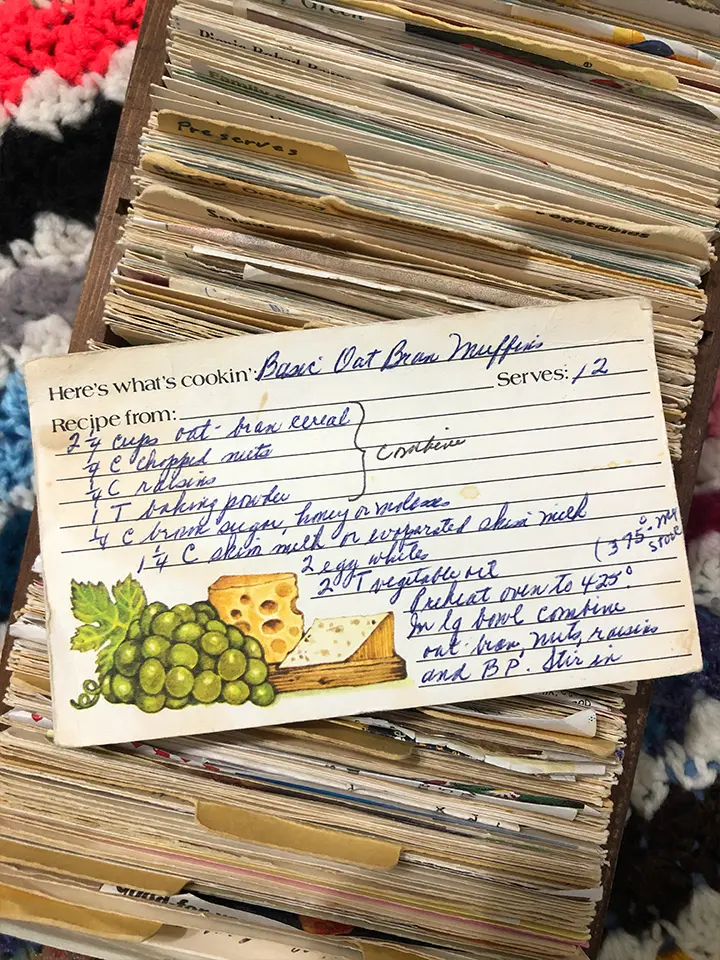 Green
Preserves
Vegetables
Here's what's cookin': Basic Oat Bran Muffins
Serves: 12
Recipe from:
2 1/4 cups oat-bran cereal
1/4 C chopped nuts
1/4 C raisins
Combine
1 T baking powder
1/4 C brown sugar, honey or molasses
1 1/4 C skim milk or evaporated skim milk
2 egg whites
2 T vegetable oil
(375° my stove
Preheat oven to 425°
In lg bowl combine
oat-bran, nuts, raisins
and B.P. Stir in